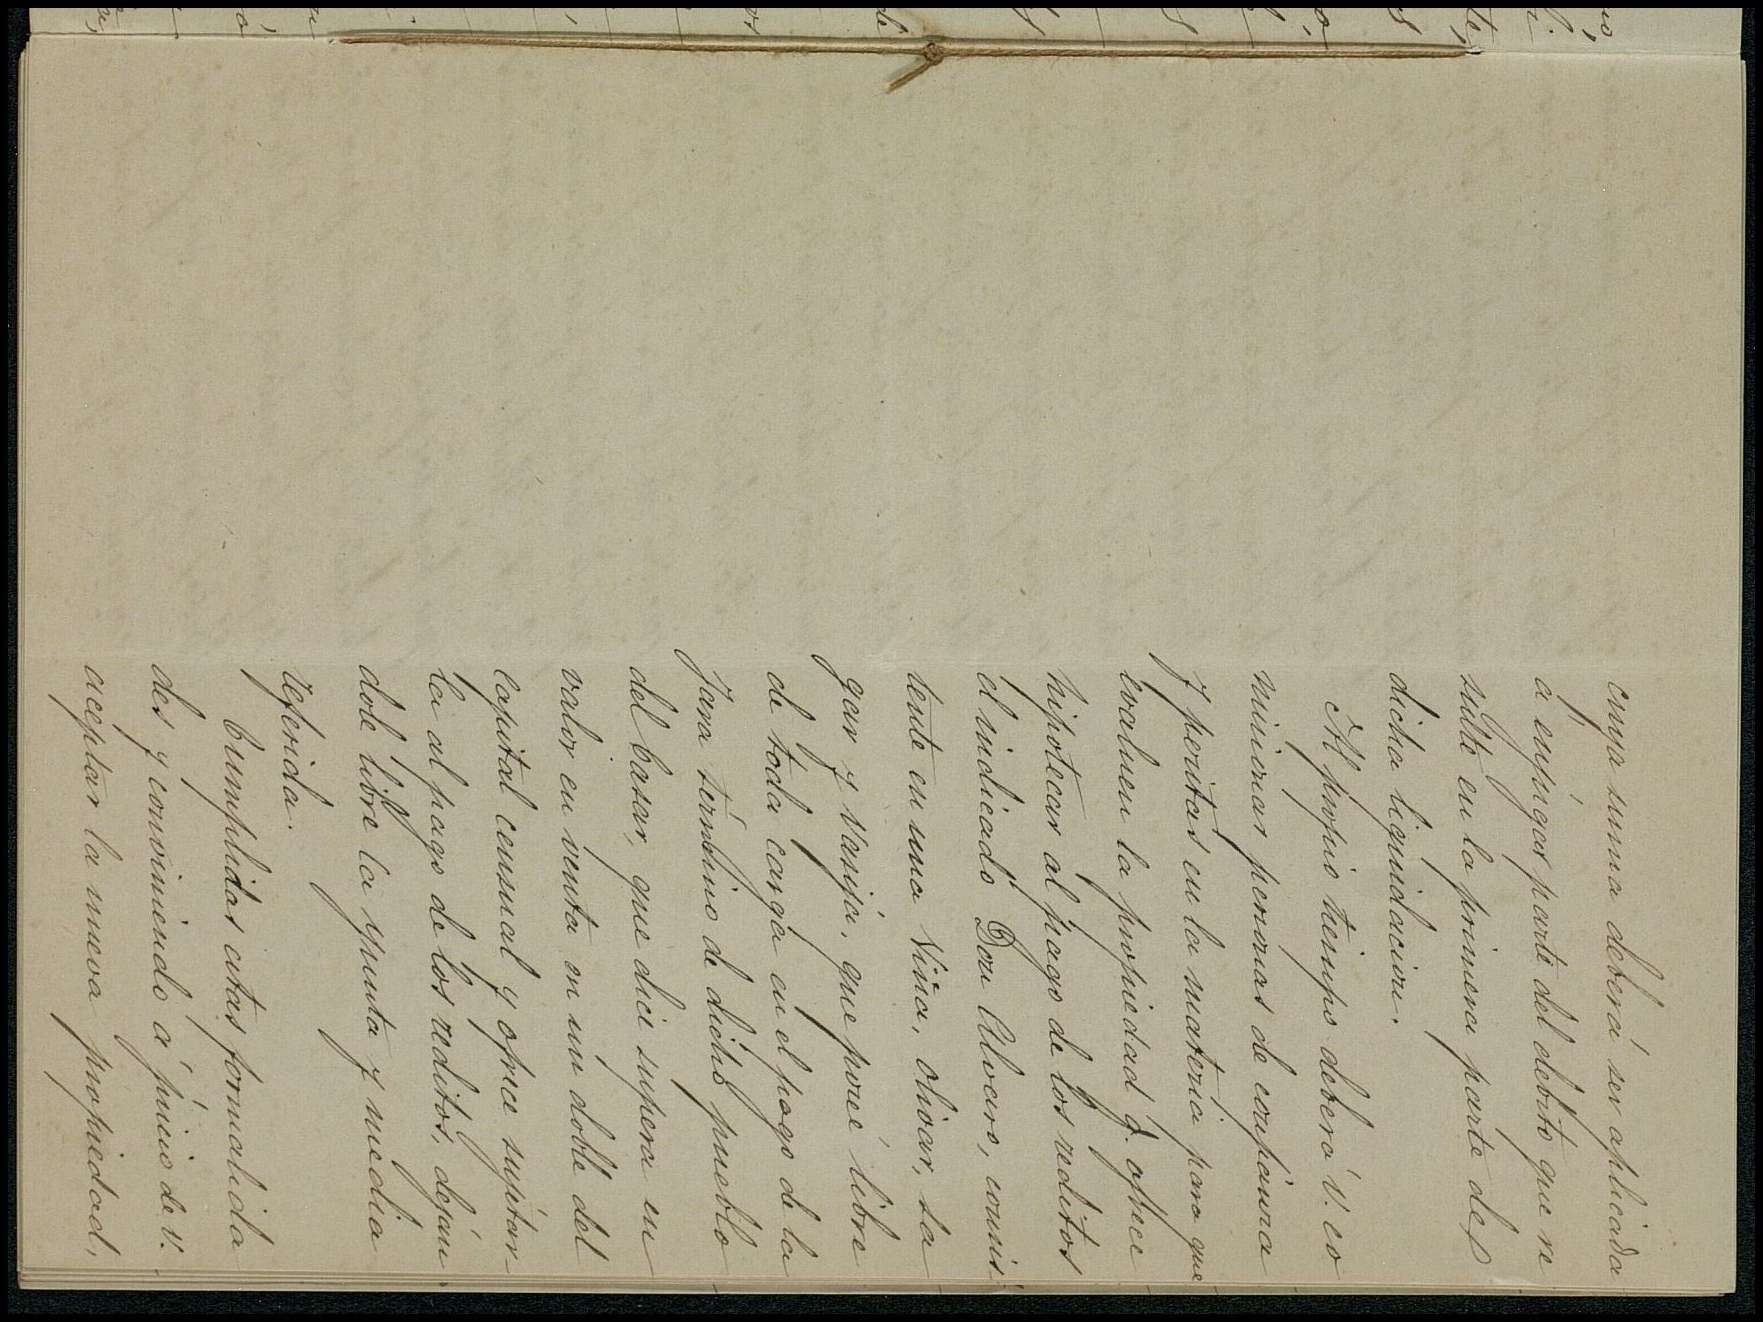 cuya suma deberá ser aplicada
á enjugar parte del debito que re
sulte en la primera parte de
dicha liquidacion.
Al propio tiempo deberá V. co
misionar personas de confianza
y peritas en la materia para que
evaluen la propiedad q. ofrece
hipotecar al pago de los reditos
el indicado Don Alvaro, consis
tente en una Viña, olivar, la
gar y vasija, que poseé libre
de toda carga en el pago de la
Jara término de dicho pueblo
del Casar, que dice supera en
valor en venta en un doble del
capital censual y ofrece sujetar-
la al pago de los reditos, deján
dole libre la yunta y media
referida.
Cumplidas estas formalida
des y conviniendo á juicio de V.
aceptar la nueva propiedad,